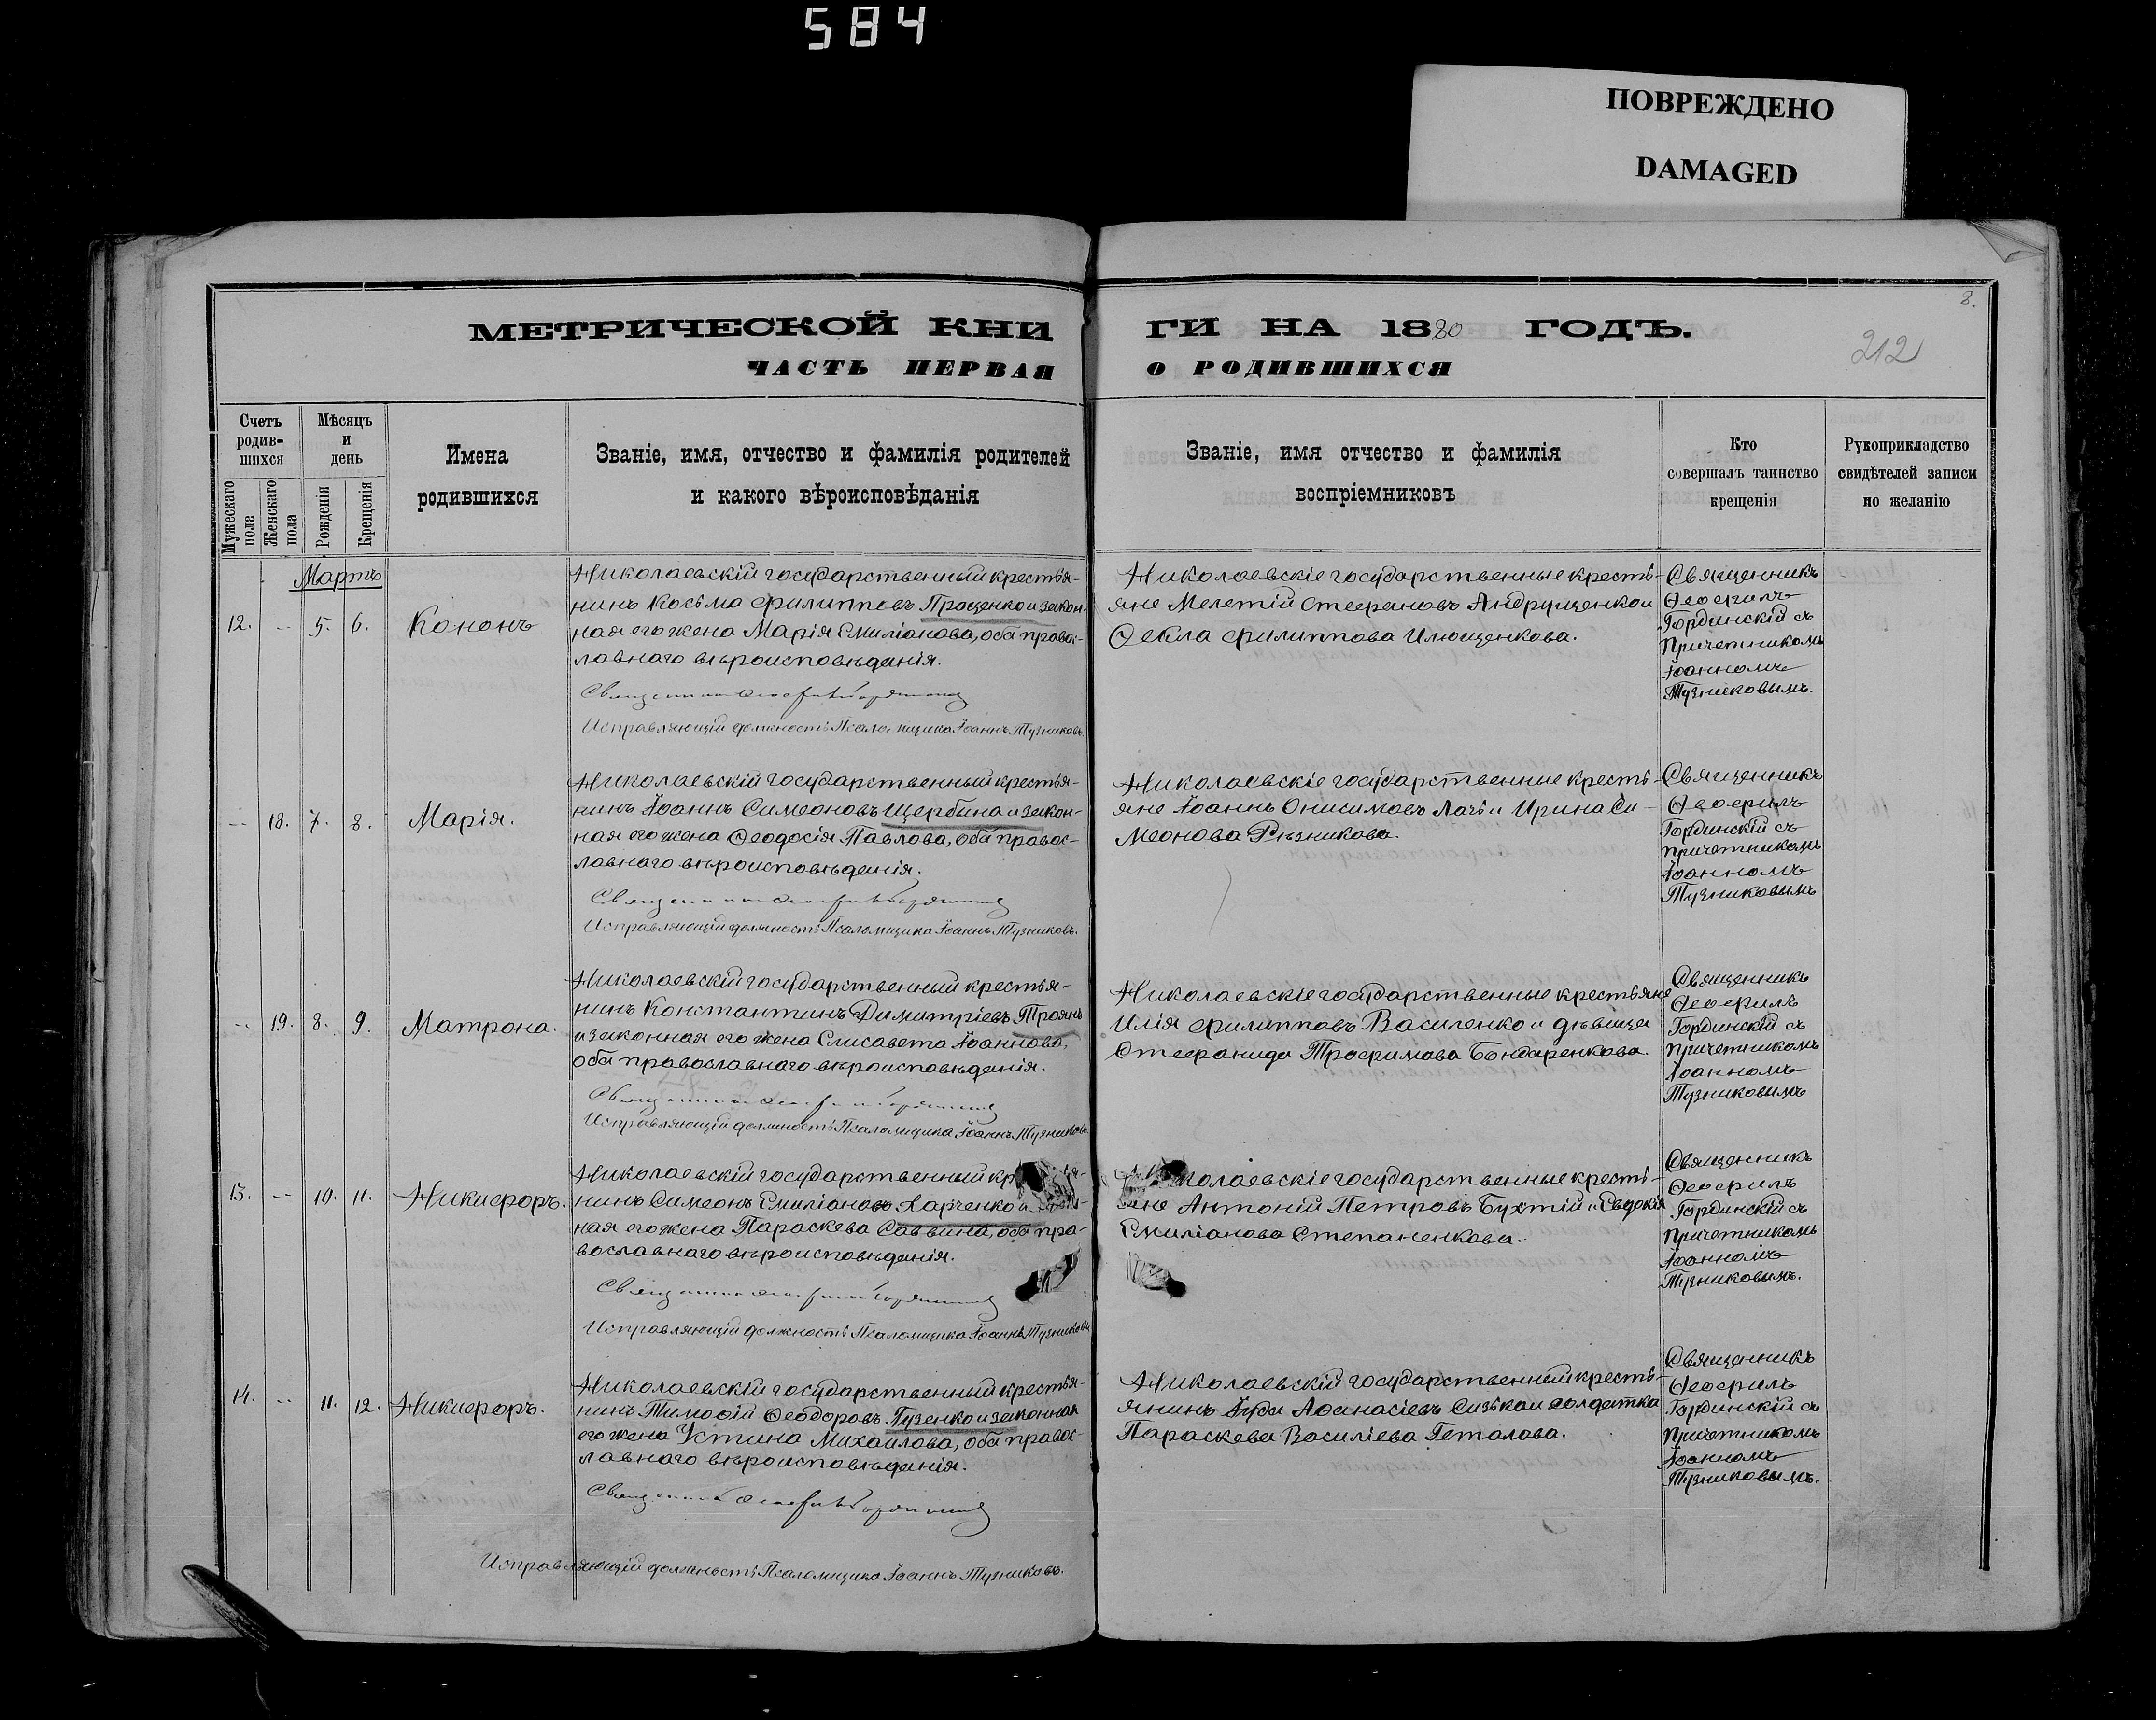 584
ПОВРЕЖДЕНО
DAMAGED
8.
МЕТРИЧЕСКОЙ КНИ
ГИ НА 1880 ГОДЪ.
212
ЧАСТЬ ПЕРВАЯ
О РОДИВШИХСЯ
Счетъ
родив-
шихся
Мужескаго
пола
Женскаго
пола
Мѣсяцъ
и
день
Рожденія
Крещенія
Имена
родившихся
Званіе, имя, отчество и фамилія родителей
и какого вѣроисповѣданія
Званіе, имя отчество и фамилія
воспріемниковъ
Кто
совершалъ таинство
крещенія
Рукоприкладство
свидѣтелей записи
по желанію
Мартъ
12. -- 5. 6. Кононъ
Николаевскій государственный крестья-
нинъ Косьма Филипповъ Проценко и закон-
ная его жена Марія Емиліанова, оба правос-
лавнаго вѣроисповѣданія.
Священникъ Ѳеофилъ Гординскій
Исправляющій должность Псаломщика Іоаннъ Тузниковъ.
Николаевскіе государственные кресть-
яне Мелетій Стефановъ Андрущенко и
Ѳекла Филиппова Илющенкова.
Священникъ
Ѳеофилъ
Гординскій съ
Причетникомъ
Іоанномъ
Тузниковымъ.
-- 18. 7. 8. Марія.
Николаевскій государственный крестья-
нинъ Іоаннъ Симеоновъ Щербина и закон-
ная его жена Ѳеодосія Павлова, оба правос-
лавнаго вѣроисповѣданія.
Священникъ Ѳеофилъ Гординскій
Исправляющій должность Псаломщика Іоаннъ Тузниковъ.
Николаевскіе государственные кресть-
яне Іоаннъ Онисимовъ и Ирина Си-
меонова Рѣзникова.
Священникъ
Ѳеофилъ
Гординскій съ
причетникомъ
Іоанномъ
Тузниковымъ
-- 19. 8. 9. Матрона.
Николаевскій государственный крестья-
нинъ Константинъ Димитріевъ Троянъ
и законная его жена Елисавета Іоаннова,
оба православнаго вѣроисповѣданія.
Священникъ Ѳеофилъ Гординскій
Исправляющій должность Псаломщика Іоаннъ Тузниковъ
Николаевскіе государственные крестьяне
Илія Филипповъ Василенко и дѣвица
Стефанида Трофимова Бондаренкова.
Священникъ
Ѳеофилъ
Гординскій съ
причетникомъ
Іоанномъ
Тузниковымъ
13. -- 10. 11. Никифоръ.
Николаевскій государственный кр
нинъ Симеонъ Емиліановъ Харченко и
ная его жена Параскева Саввина, оба пра-
вославнаго вѣроисповѣданія.
Священникъ Ѳеофилъ Гординскій
Исправляющій должность Псаломщика Іоаннъ Тузниковъ
Николаевскіе государственные кресть-
яне Антоній Петровъ Бухтій и Евдокія
Емиліанова Степаненкова.
Священникъ
Ѳеофилъ
Гординскій съ
причетникомъ
Іоанномъ
Тузниковымъ.
14. -- 11. 12. Никифоръ.
Николаевскій государственный крестья-
нинъ Тимоѳій Ѳеодоровъ Пузенко и законная
его жена Устина Михаилова, оба правос-
лавнаго вѣроисповѣданія.
Священникъ Ѳеофилъ Гординскій
Исправляющій должность Псаломщика Іоаннъ Тузниковъ.
Николаевскій государственный кресть-
янинъ Аѳанасіевъ и солдатка
Параскева Василіева Геталова.
Священникъ
Ѳеофилъ
Гординскій съ
причетникомъ
Іоанномъ
Тузниковымъ.